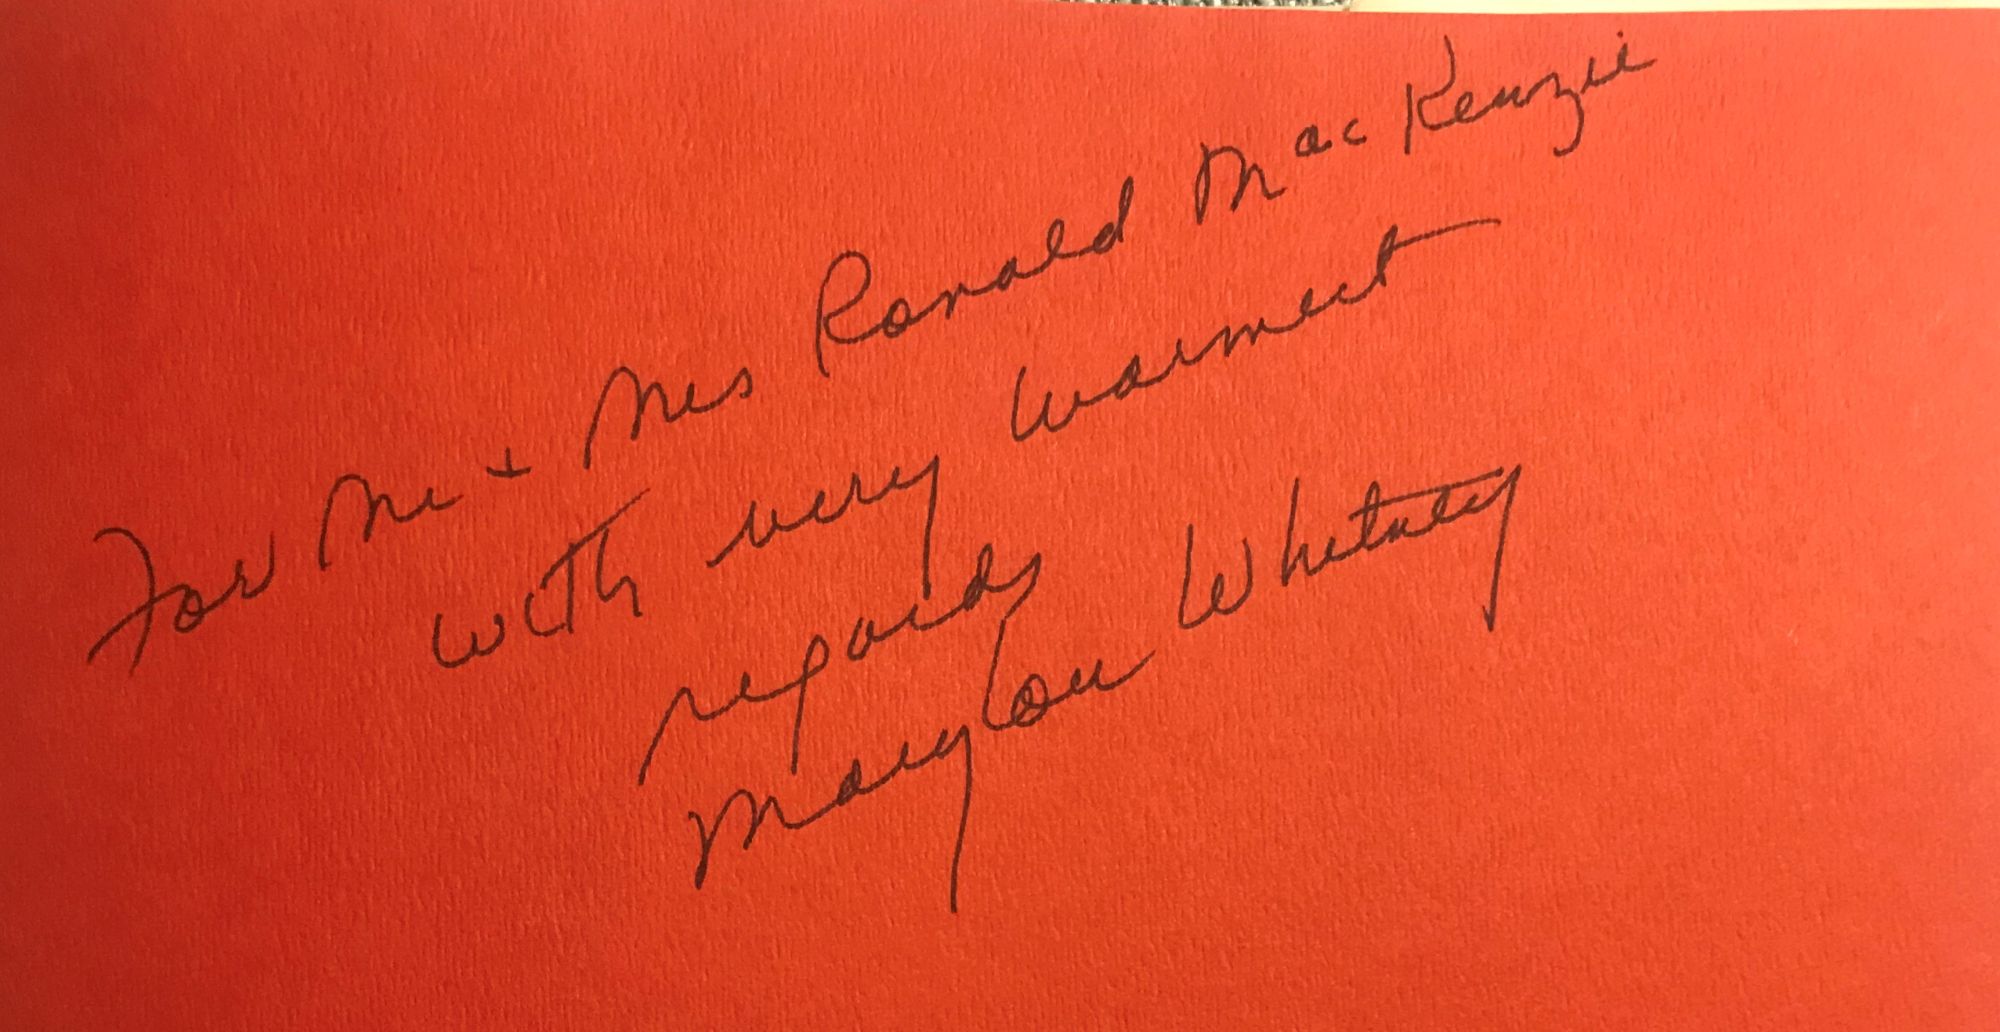 For Mr + Mrs Ronald MacKenzie
with very warmest
regards
Marylou Whitney